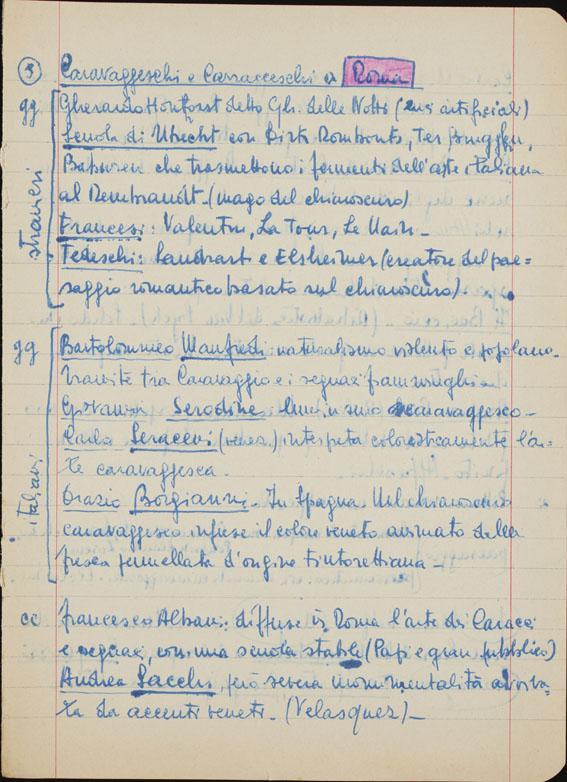 3 Caravaggeschi e Carracceschi a Roma
gg Gherardo Hontorst detto Gh. delle Notti (luci artificiali)
stranieri
Scuola di Utrecht con Dirk Rombouts, Ter Brugghen,
Baburen che trasmettono i fermenti dell'arte italiana
al Rembrandt - (mago del chiaroscuro)
Francesi: Valentin, La Tour, Le Nain -
Tedeschi: Sandrart e Elsheimer (creatore del pae=
saggio romantico basato sul chiaroscuro).
gg Bartolommeo Manfredi naturalismo violento e popolano.
italiani
tramite tra Caravaggio e i seguaci fiamminghi -
Giovanni Serodine caravaggesco -
Carlo Seraceni (venez.) interpreta coloristicamente l'ar-
te caravaggesca.
Orazio Borgianni In Spagna. Nel chiaroscuro
caravaggesco infuse il colore veneto animato dalla
fresca pennellata d'origine tintorettiana -
cc Francesco Albani: diffuse in Roma l'arte dei Caracci
e seguaci, con una scuola stabile (Papi e gran pubblico)
Andrea Sacchi, severa monumentalità
ta da accenti veneti. (Velasquez) -